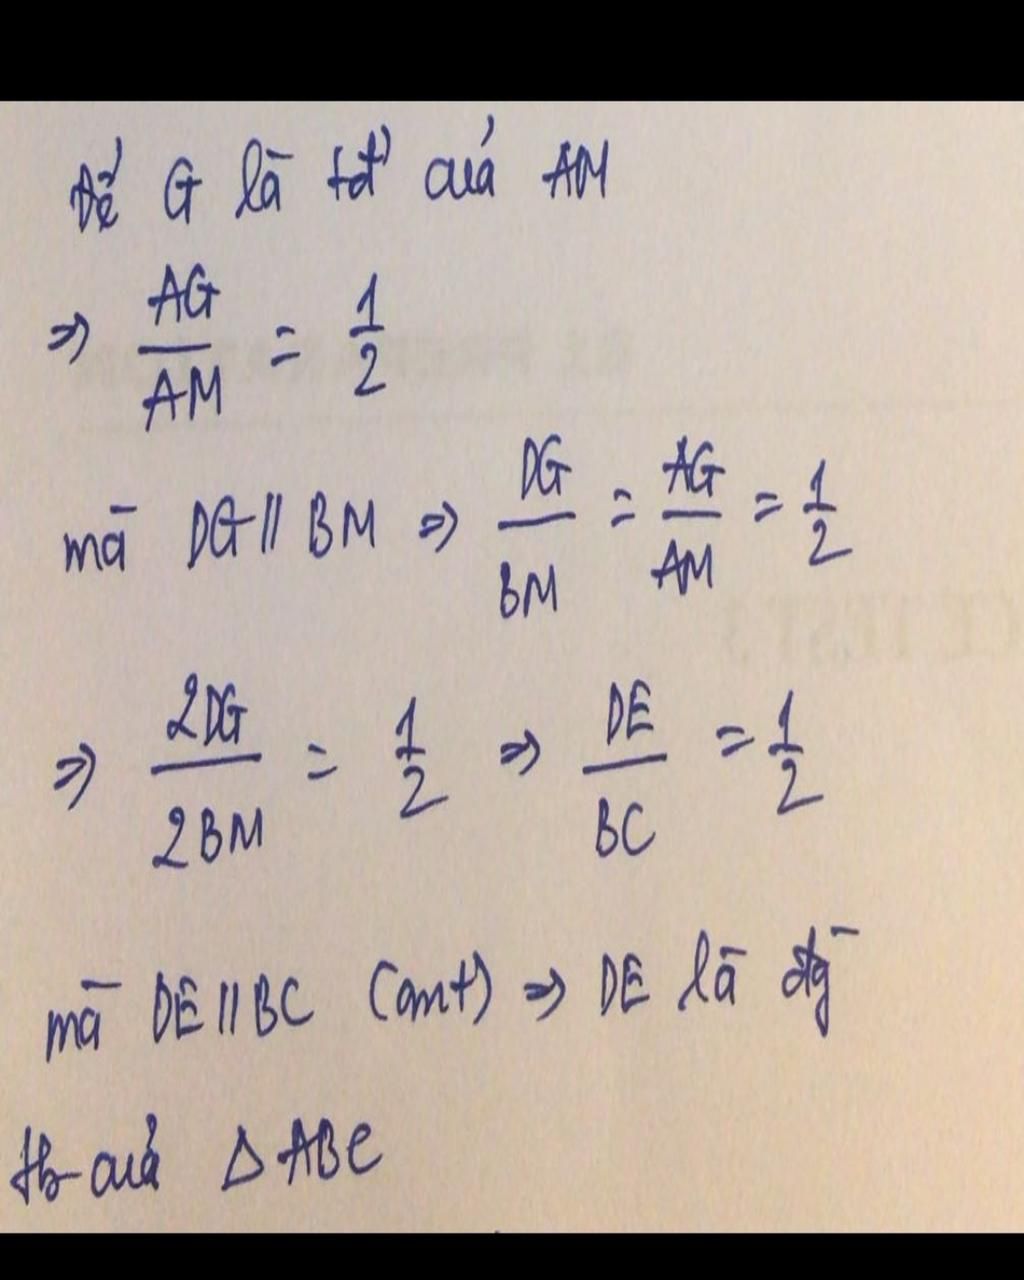 Để G là tđ của AM
⇒ AG/AM = 1/2
mà DG // BM ⇒ DG/BM = AG/AM = 1/2
⇒ 2DG/2BM = 1/2 ⇒ DE/BC = 1/2
mà DE // BC (cmt) ⇒ DE là đg
tb của Δ ABC